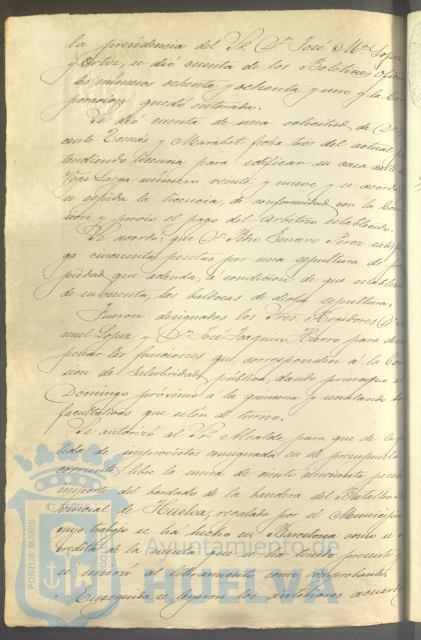 la presidencia del Sr. Dn. José Ma. Lopez
y Ortiz, se dió cuenta de los Boletines Ofici
números ochenta y ochenta y uno y la Cor
poracion quedó enterada.
Se dió cuenta de una solicitud de Dn.
Tomás y Marabet fecha tres del actual
licencia para edificar su casa calle
Vega Larga número veinte y nueve y se acordó
se expida la licencia, de conformidad con la Comi
sion y previo el pago del arbitrio establecido.
Se acordó: que Dn. Pedro Romero Perez satisfa
ga cincuenta pesetas por una sepultura de pro
piedad que adeuda, á condicion de que
de su cuenta, las baldosas de dicha sepultura.
Fueron designados los Sres. Regidores Dn.
nuel Lopez y Dn. José Joaquin Harro para desem
peñar las funciones que corresponden á la Comi
sion de Salubridad pública, dando principio el
Domingo próximo á la quincena y
facultativos que estén de turno.
Se autorizó al Sr. Alcalde para que de la
de imprevistos consignada en el presupuesto
corriente, libre la suma de ciento cincuenta pesetas
importe del bordado de la bandera del Batallon
vincial de Huelva, regalada por el Municipio
cuyo trabajo se ha hecho en Barcelona como se a
credita de la cuenta que ha sido presente y
se unirá al libramiento como comprobante.
Enseguida se leyeron los anteriores acuerdos
Ayuntamiento de
HUELVA
PORTUS MARIS